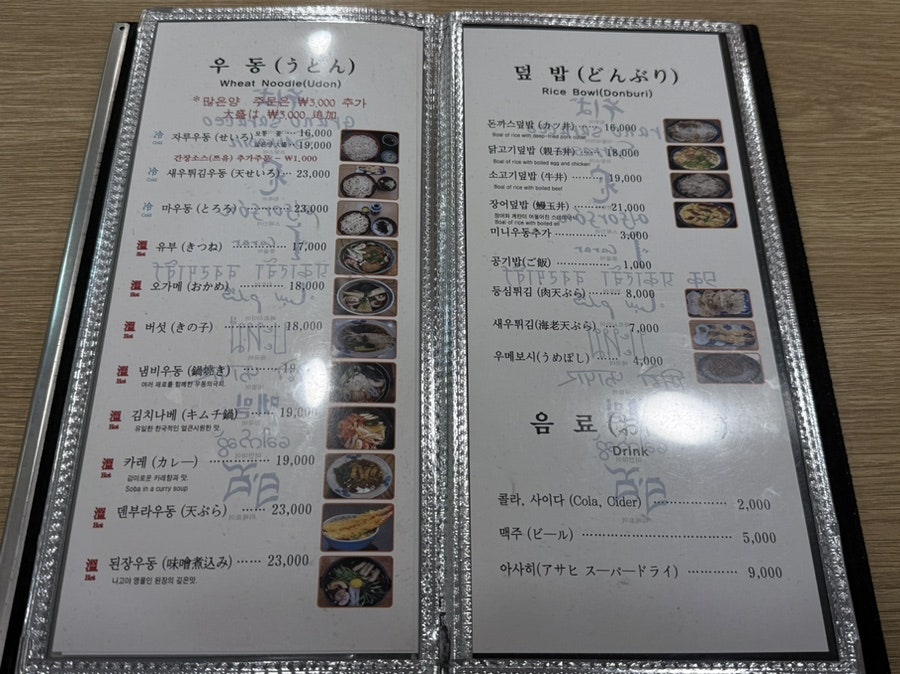 우 동 (うどん)
Wheat Noodle(Udon)
*많은양 주문은 ₩3,000 추가
大盛は ₩3,000 追加
冷 Cold 자루우동 (せいろ) 보통 ... 16,000
19,000
간장소스(쯔유) 추가주문 - ₩1,000
冷 Cold 새우튀김우동 (天せいろ) ... 23,000
冷 Cold 마우동 (とろろ) ........ 23,000
溫 Hot 유부 (きつね) ......... 17,000
溫 Hot 오가메 (おかめ) ......... 18,000
溫 Hot 버섯 (きの子) ............ 18,000
溫 Hot 냄비우동 (鍋焼き) ......
여러 재료를 함께한 우동의극치
溫 Hot 김치나베 (キムチ鍋) ...... 19,000
유일한 한국적인 얼큰시원한 맛.
溫 Hot 카레 (カレー) ............ 19,000
감미로운 카레향과 맛.
Soba in a curry soup
溫 Hot 덴부라우동 (天ぷら) ...... 23,000
溫 Hot 된장우동 (味噌煮込み) ...... 23,000
나고야 명물인 된장의 깊은맛.
덮 밥 (どんぶり)
Rice Bowl(Donburi)
돈까스덮밥 (カツ丼) ...... 16,000
Boal of rice with deep-fried pork cutlet
닭고기덮밥 (親子丼) ... 18,000
Boal of rice with boiled egg and chicken
소고기덮밥 (牛丼) ......... 19,000
Boal of rice with boiled beef
장어덮밥 (鰻玉丼) ......... 21,000
장어와 계란이 어울어진
Boal of rice with boiled
미니우동추가 ............ 3,000
공기밥(ご飯) ............ 1,000
등심튀김 (肉天ぷら) ......... 8,000
새우튀김(海老天ぷら) ... 7,000
우메보시(うめぼし) ...... 4,000
음 료
Drink
콜라, 사이다 (Cola, Cider) ............... 2,000
맥주 (ビール) .............................. 5,000
아사히(アサヒ スーパードライ) ............ 9,000